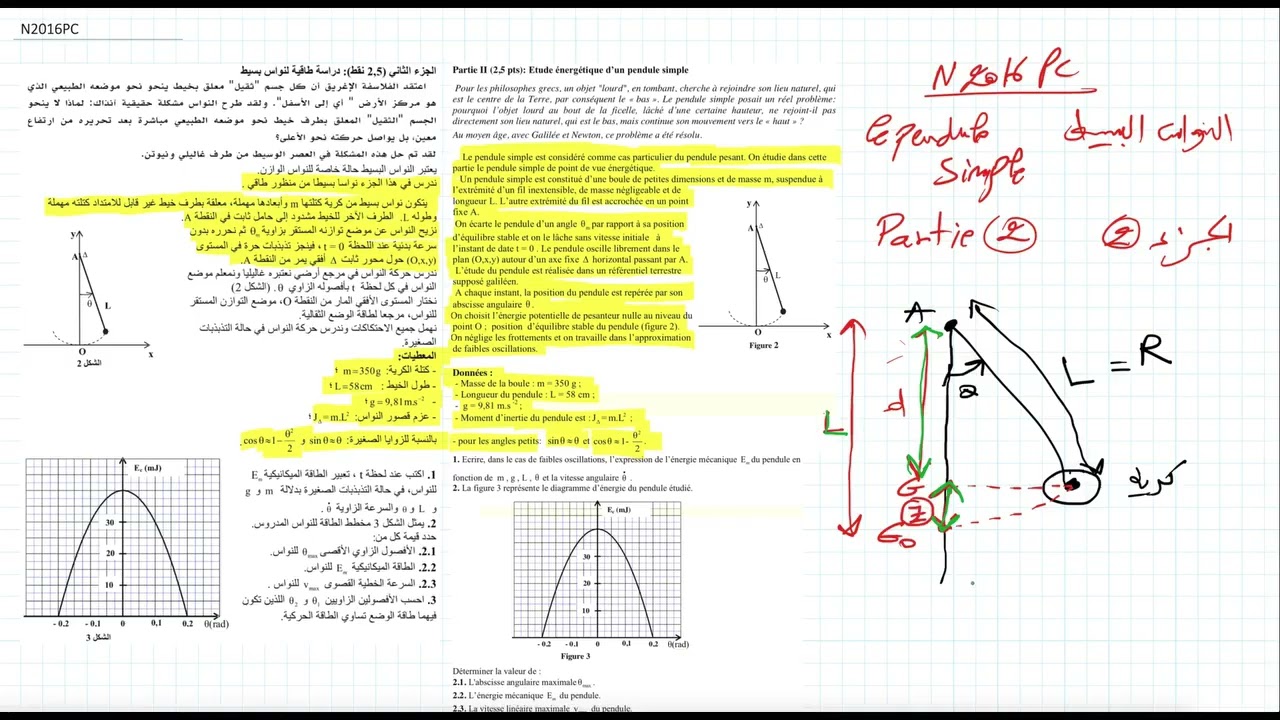 N2016PC
الجزء الثاني (2,5 نقط): دراسة طاقية لنواس بسيط
اعتقد الفلاسفة الإغريق أن كل جسم "ثقيل" معلق بخيط ينحو نحو موضعه الطبيعي الذي
هو مركز الأرض " أي إلى الأسفل". ولقد طرح النواس مشكلة حقيقية آنذاك: لماذا لا ينحو
الجسم "الثقيل" المعلق بطرف خيط نحو موضعه الطبيعي مباشرة بعد تحريره من ارتفاع
معين، بل يواصل حركته نحو الأعلى؟
لقد تم حل هذه المشكلة في العصر الوسيط من طرف غاليلي ونيوتن.
يعتبر النواس البسيط حالة خاصة للنواس الوازن.
ندرس في هذا الجزء نواسا بسيطا من منظور طاقي.
يتكون نواس بسيط من كرية كتلتها m وأبعادها مهملة، معلقة بطرف خيط غير قابل للامتداد كتلته مهملة
وطوله L. الطرف الآخر للخيط مشدود إلى حامل ثابت في النقطة A.
نزيح النواس عن موضع توازنه المستقر بزاوية θm ثم نحرره بدون
سرعة بدئية عند اللحظة t = 0 ، فينجز تذبذبات حرة في المستوى
(O,x,y) حول محور ثابت Δ أفقي يمر من النقطة A.
ندرس حركة النواس في مرجع أرضي نعتبره غاليليا ونمعلم موضع
النواس في كل لحظة t بأفصوله الزاوي θ. (الشكل 2)
نختار المستوى الأفقي المار من النقطة O، موضع التوازن المستقر
للنواس، مرجعا لطاقة الوضع الثقالية.
نهمل جميع الاحتكاكات وندرس حركة النواس في حالة التذبذبات
الصغيرة.
y
A
Δ
θ
L
O
x
الشكل 2
المعطيات:
- كتلة الكرية: m=350g ؛
- طول الخيط: L=58cm ؛
- g=9,81m.s⁻² ؛
- عزم قصور النواس: JΔ=m.L² ؛
بالنسبة للزوايا الصغيرة: sinθ≈θ و cosθ≈1-θ²/2.
1. اكتب عند لحظة t ، تعبير الطاقة الميكانيكية Em
للنواس، في حالة التذبذبات الصغيرة بدلالة m و g
و L و θ والسرعة الزاوية θ̇ .
2. يمثل الشكل 3 مخطط الطاقة للنواس المدروس.
حدد قيمة كل من:
2.1. الأفصول الزاوي الأقصى θmax للنواس.
2.2. الطاقة الميكانيكية Em للنواس.
2.3. السرعة الخطية القصوى vmax للنواس .
3. احسب الأفصولين الزاويين θ1 و θ2 اللذين تكون
فيهما طاقة الوضع تساوي الطاقة الحركية.
Ec (mJ)
30
20
10
- 0.2 - 0.1 0 0,1 0.2 θ(rad)
الشكل 3
Partie II (2,5 pts): Etude énergétique d'un pendule simple
Pour les philosophes grecs, un objet "lourd", en tombant, cherche à rejoindre son lieu naturel, qui
est le centre de la Terre, par conséquent le « bas ». Le pendule simple posait un réel problème:
pourquoi l'objet lourd au bout de la ficelle, lâché d'une certaine hauteur, ne rejoint-il pas
directement son lieu naturel, qui est le bas, mais continue son mouvement vers le « haut » ?
Au moyen âge, avec Galilée et Newton, ce problème a été résolu.
Le pendule simple est considéré comme cas particulier du pendule pesant. On étudie dans cette
partie le pendule simple de point de vue énergétique.
Un pendule simple est constitué d'une boule de petites dimensions et de masse m, suspendue à
l'extrémité d'un fil inextensible, de masse négligeable et de
longueur L. L'autre extrémité du fil est accrochée en un point
fixe A.
On écarte le pendule d'un angle θm par rapport à sa position
d'équilibre stable et on le lâche sans vitesse initiale à
l'instant de date t = 0 . Le pendule oscille librement dans le
plan (O,x,y) autour d'un axe fixe Δ horizontal passant par A.
L'étude du pendule est réalisée dans un référentiel terrestre
supposé galiléen.
A chaque instant, la position du pendule est repérée par son
abscisse angulaire θ .
On choisit l'énergie potentielle de pesanteur nulle au niveau du
point O ; position d'équilibre stable du pendule (figure 2).
On néglige les frottements et on travaille dans l'approximation
de faibles oscillations.
y
A
Δ
θ
L
O
x
Figure 2
Données :
- Masse de la boule : m = 350 g ;
- Longueur du pendule : L = 58 cm ;
- g = 9,81 m.s⁻² ;
- Moment d'inertie du pendule est : JΔ = m.L² ;
- pour les angles petits: sinθ≈θ et cosθ≈1-θ²/2.
1. Ecrire, dans le cas de faibles oscillations, l'expression de l'énergie mécanique Em du pendule en
fonction de m , g , L , θ et la vitesse angulaire θ̇ .
2. La figure 3 représente le diagramme d'énergie du pendule étudié.
Ec (mJ)
30
20
10
- 0.2 - 0.1 0 0,1 0.2 θ(rad)
Figure 3
Déterminer la valeur de :
2.1. L'abscisse angulaire maximale θmax .
2.2. L'énergie mécanique Em du pendule.
2.3. La vitesse linéaire maximale vmax du pendule.
N 2016 PC
le pendule simple
النواس البسيط
Partie 2
الجزء 2
A
L = R
θ
d
L
G
Z
G0
كرية